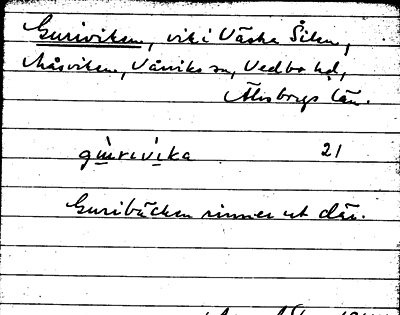 Guriviken, vik i Västra Silen,
Måsviken, Vårviks sn, Vedbo hd,
Älvsborgs län.
gu̱̇rivi̱̇ka 21
Guribäcken rinner ut där.